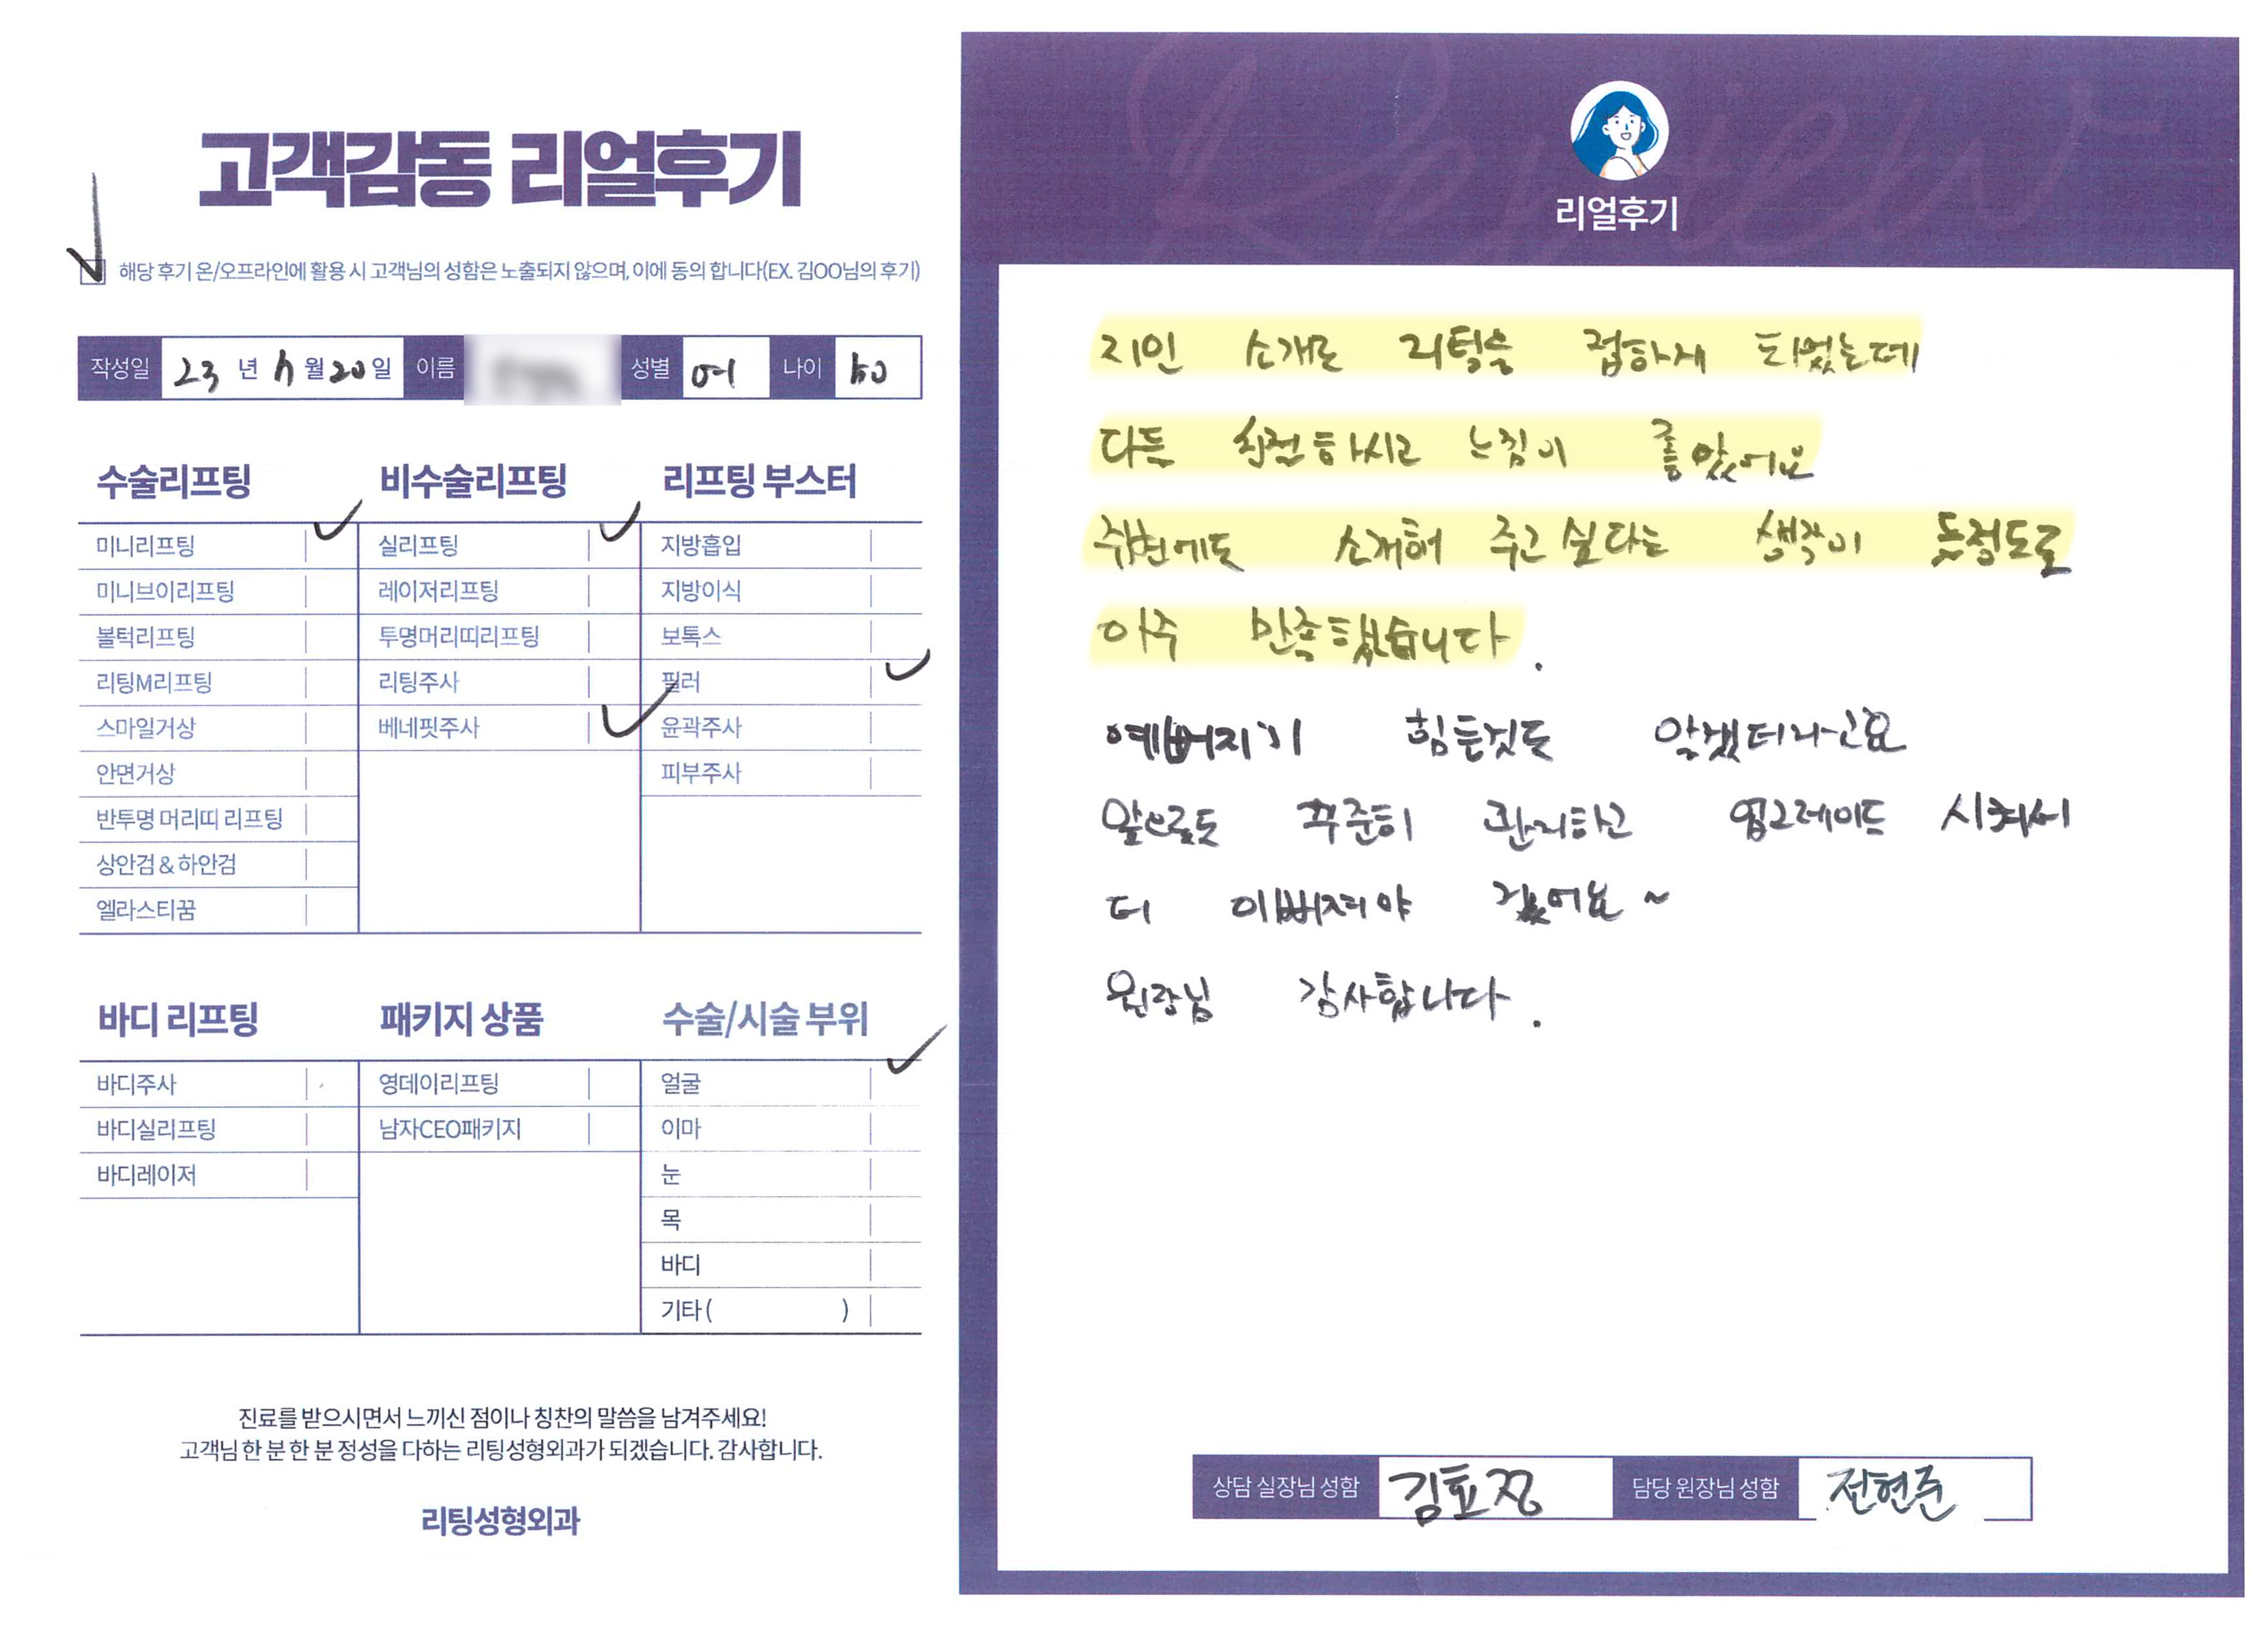 고객감동 리얼후기
해당 후기 온/오프라인에 활용 시 고객님의 성함은 노출되지 않으며, 이에 동의 합니다(EX. 김OO님의 후기)
작성일 23 년 월 20 일 이름 성별 여 나이 50
수술리프팅
미니리프팅
미니브이리프팅
볼턱리프팅
리팅M리프팅
스마일거상
안면거상
반투명 머리띠 리프팅
상안검 & 하안검
엘라스티꿈
비수술리프팅
실리프팅
레이저리프팅
투명머리띠리프팅
리팅주사
베네핏주사
리프팅 부스터
지방흡입
지방이식
보톡스
필러
윤곽주사
피부주사
바디 리프팅
바디주사
바디실리프팅
바디레이저
패키지 상품
영데이리프팅
남자CEO패키지
수술/시술 부위
얼굴
이마
눈
목
바디
기타 ( )
진료를 받으시면서 느끼신 점이나 칭찬의 말씀을 남겨주세요!
고객님 한 분 한 분 정성을 다하는 리팅성형외과가 되겠습니다. 감사합니다.
리팅성형외과
Review
리얼후기
지인 소개로 리팅을 접하게 되었는데
다들 친절하시고 느낌이 좋았어요
주변에도 소개해 주고 싶다는 생각이 들정도로
아주 만족했습니다.
예뻐지기 힘든것도 알겠더라고요
앞으로도 꾸준히 관리하고 업그레이드 시켜서
더 이뻐져야 겠어요~
원장님 감사합니다.
상담 실장님 성함 김효정 담당 원장님 성함 전현준